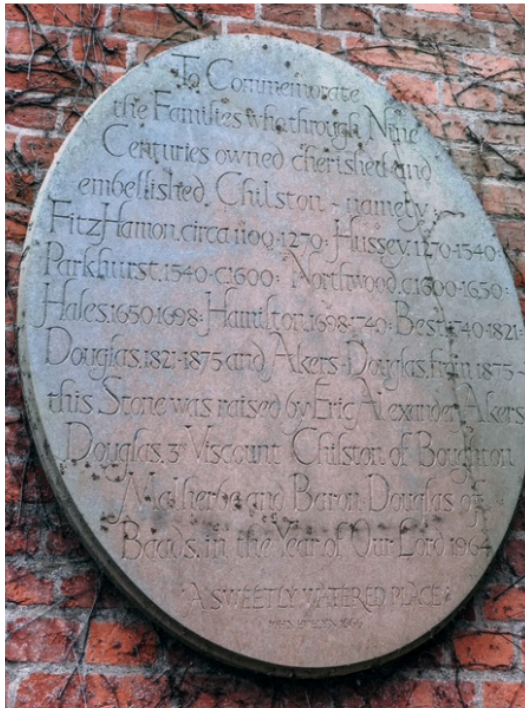 To Commemorate
the Families who through Nine
Centuries owned cherished and
embellished Chilston - namely
FitzHamon. circa 1100-1270: Hussey. 1270-1540:
Parkhurst. 1540-c1600: Northwood. c1600-1650:
Hales. 1650-1698: Hamilton. 1698-1740: Best. 1740-1821:
Douglas. 1821-1875 and Akers-Douglas. from 1875 -
this Stone was raised by Eric Alexander Akers
Douglas. 3rd Viscount Chilston of Boughton
Malherbe and Baron Douglas of
Baads. in the Year of Our Lord 1964
A SWEETLY WATERED PLACE
JOHN EVELYN 1666